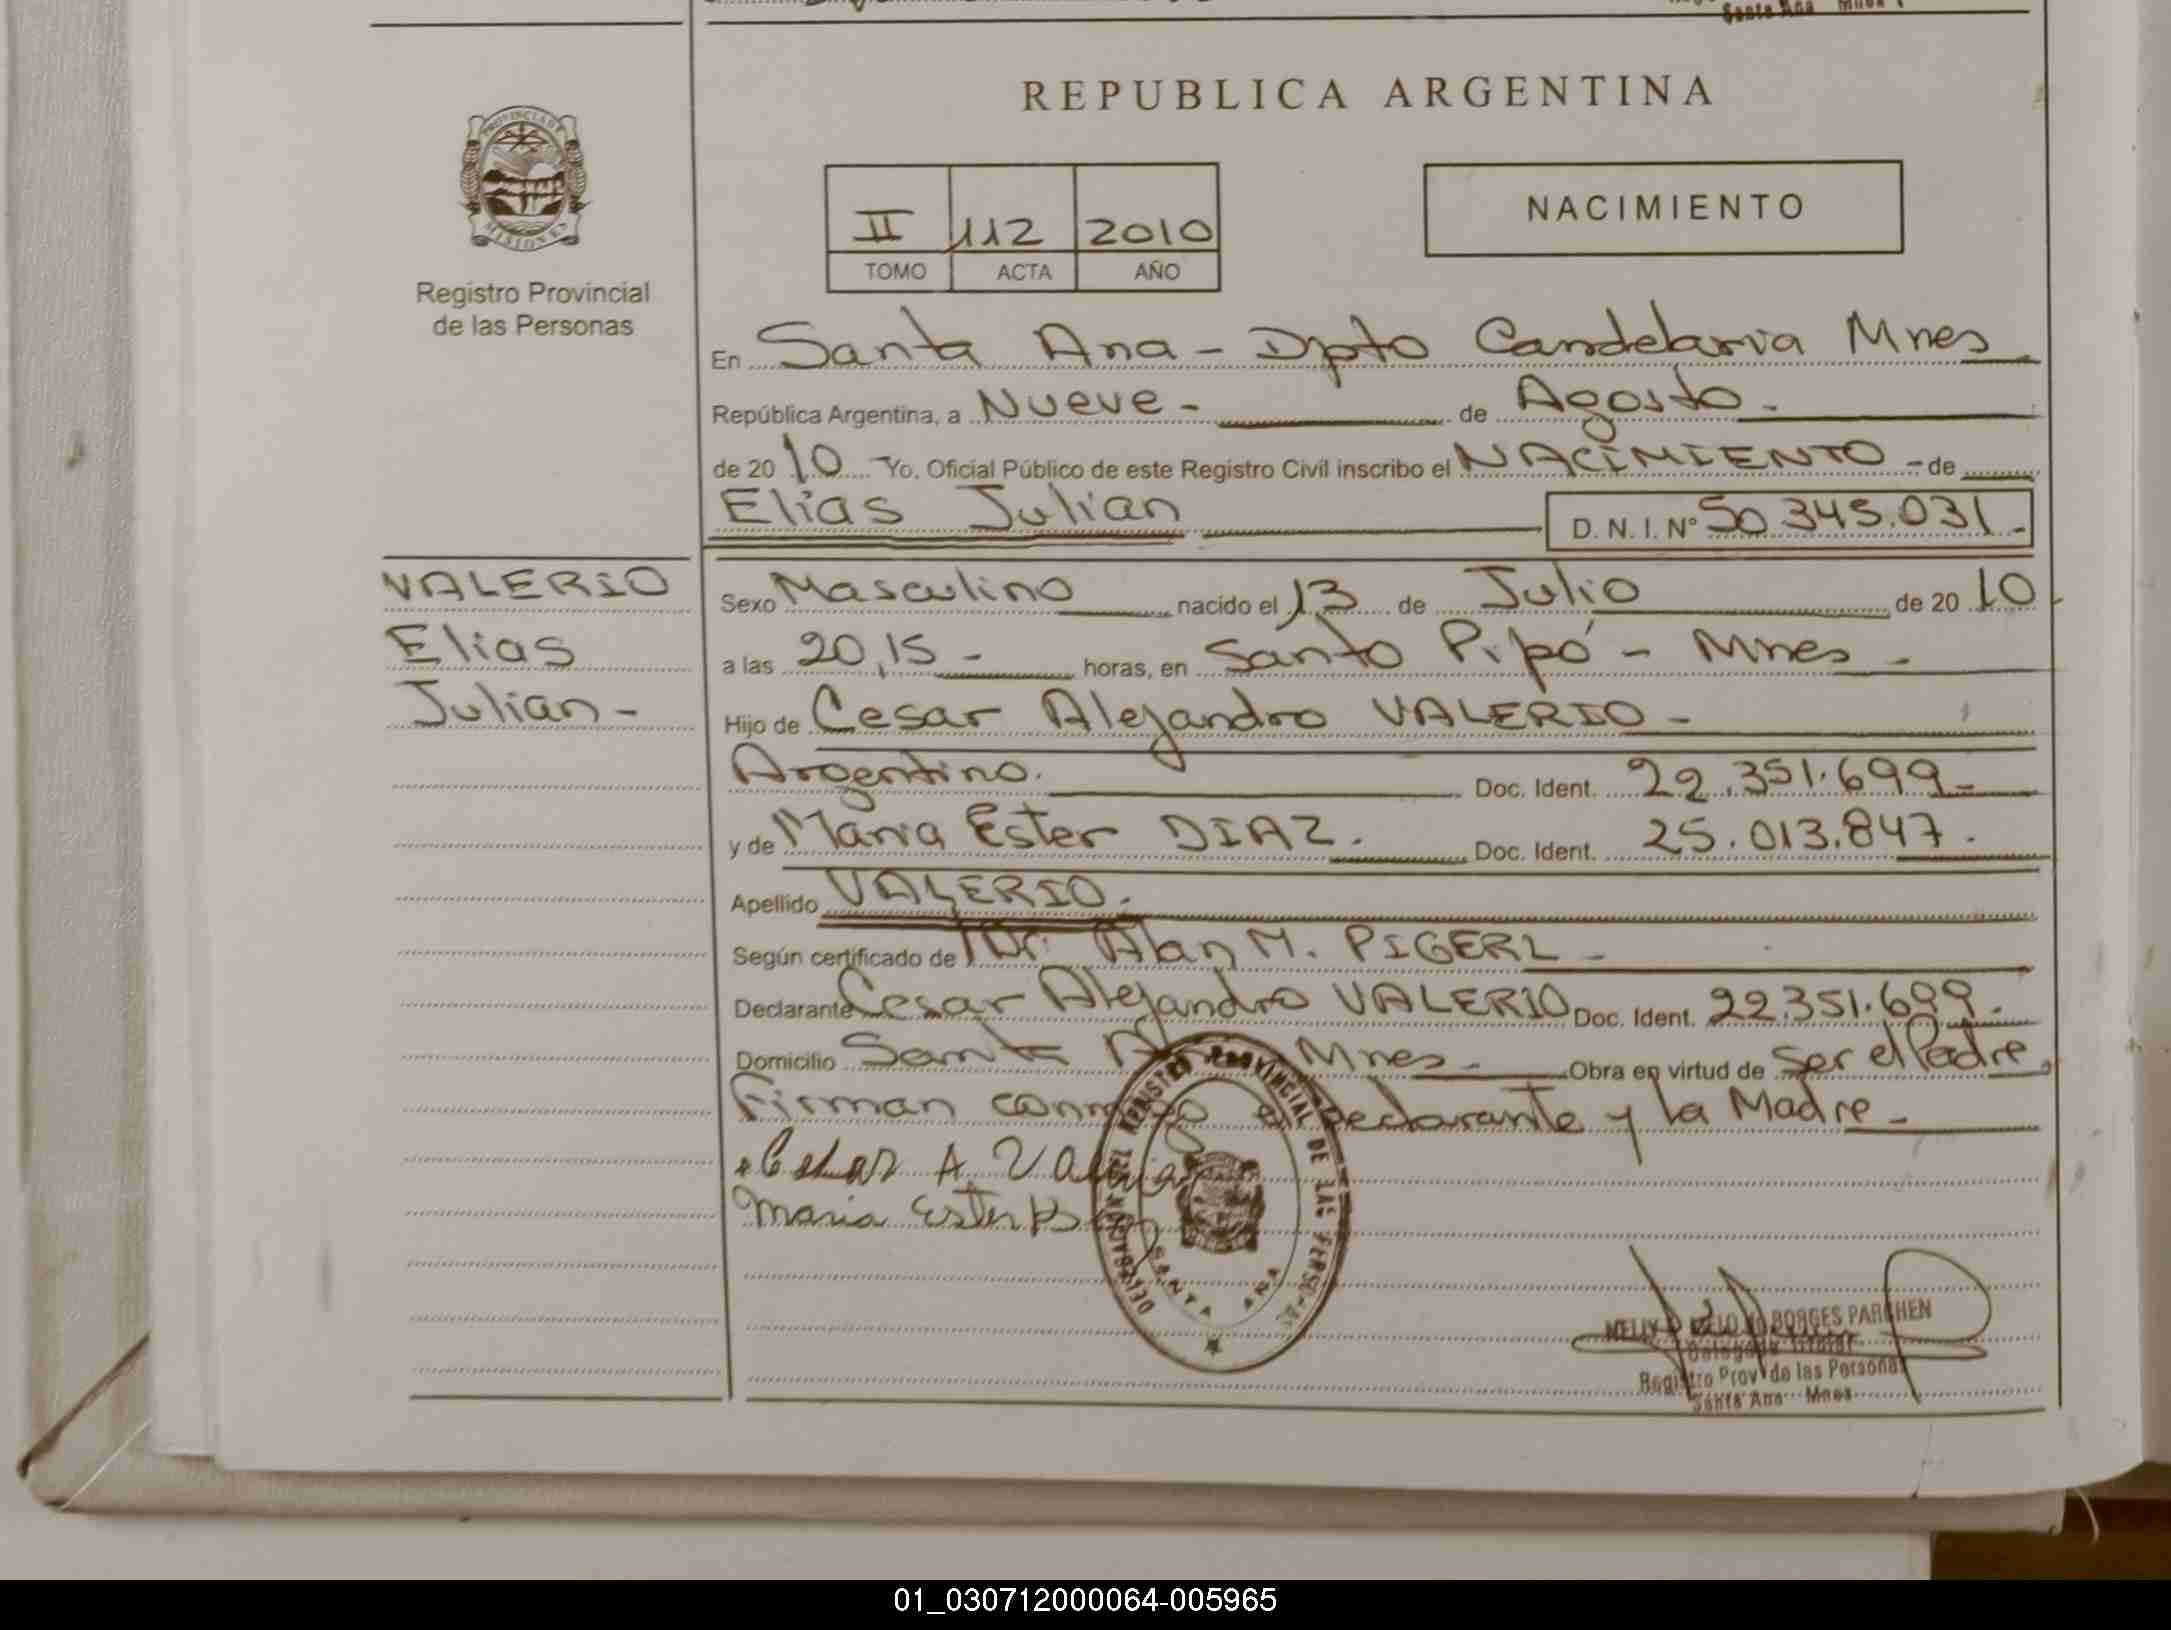 Santa Ana Mnes
REPUBLICA ARGENTINA
PROVINCIA DE
MISIONES
Registro Provincial
de las Personas
II 112 2010
TOMO ACTA AÑO
NACIMIENTO
En Santa Ana - Dpto Candelaria Mnes
República Argentina, a Nueve - de Agosto -
de 2010 Yo. Oficial Público de este Registro Civil inscribo el NACIMIENTO - de
Elias Julian D. N. I. Nº 50.345.031 -
VALERIO
Elias
Julian -
Sexo Masculino nacido el 13 de Julio de 2010
a las 20,15 - horas, en Santo Pipó - Mnes -
Hijo de Cesar Alejandro VALERIO -
Argentino. Doc. Ident. 22.351.699 -
y de Maria Ester DIAZ. Doc. Ident. 25.013.847.
Apellido VALERIO.
Según certificado de Dr. Alan M. PIGERL -
Declarante Cesar Alejandro VALERIO Doc. Ident. 22.351.699.
Domicilio Santa Ana Mnes - Obra en virtud de Ser el Padre,
Firman conmigo el Declarante y la Madre -
Cesar A. Valerio
Maria Ester
DELEGACION DEL REGISTRO PROVINCIAL DE LAS PERSONAS
SANTA ANA
BORGES PARCHEN
Delegada Titular
Registro Prov de las Personas
Santa Ana Mnes
01_030712000064-005965